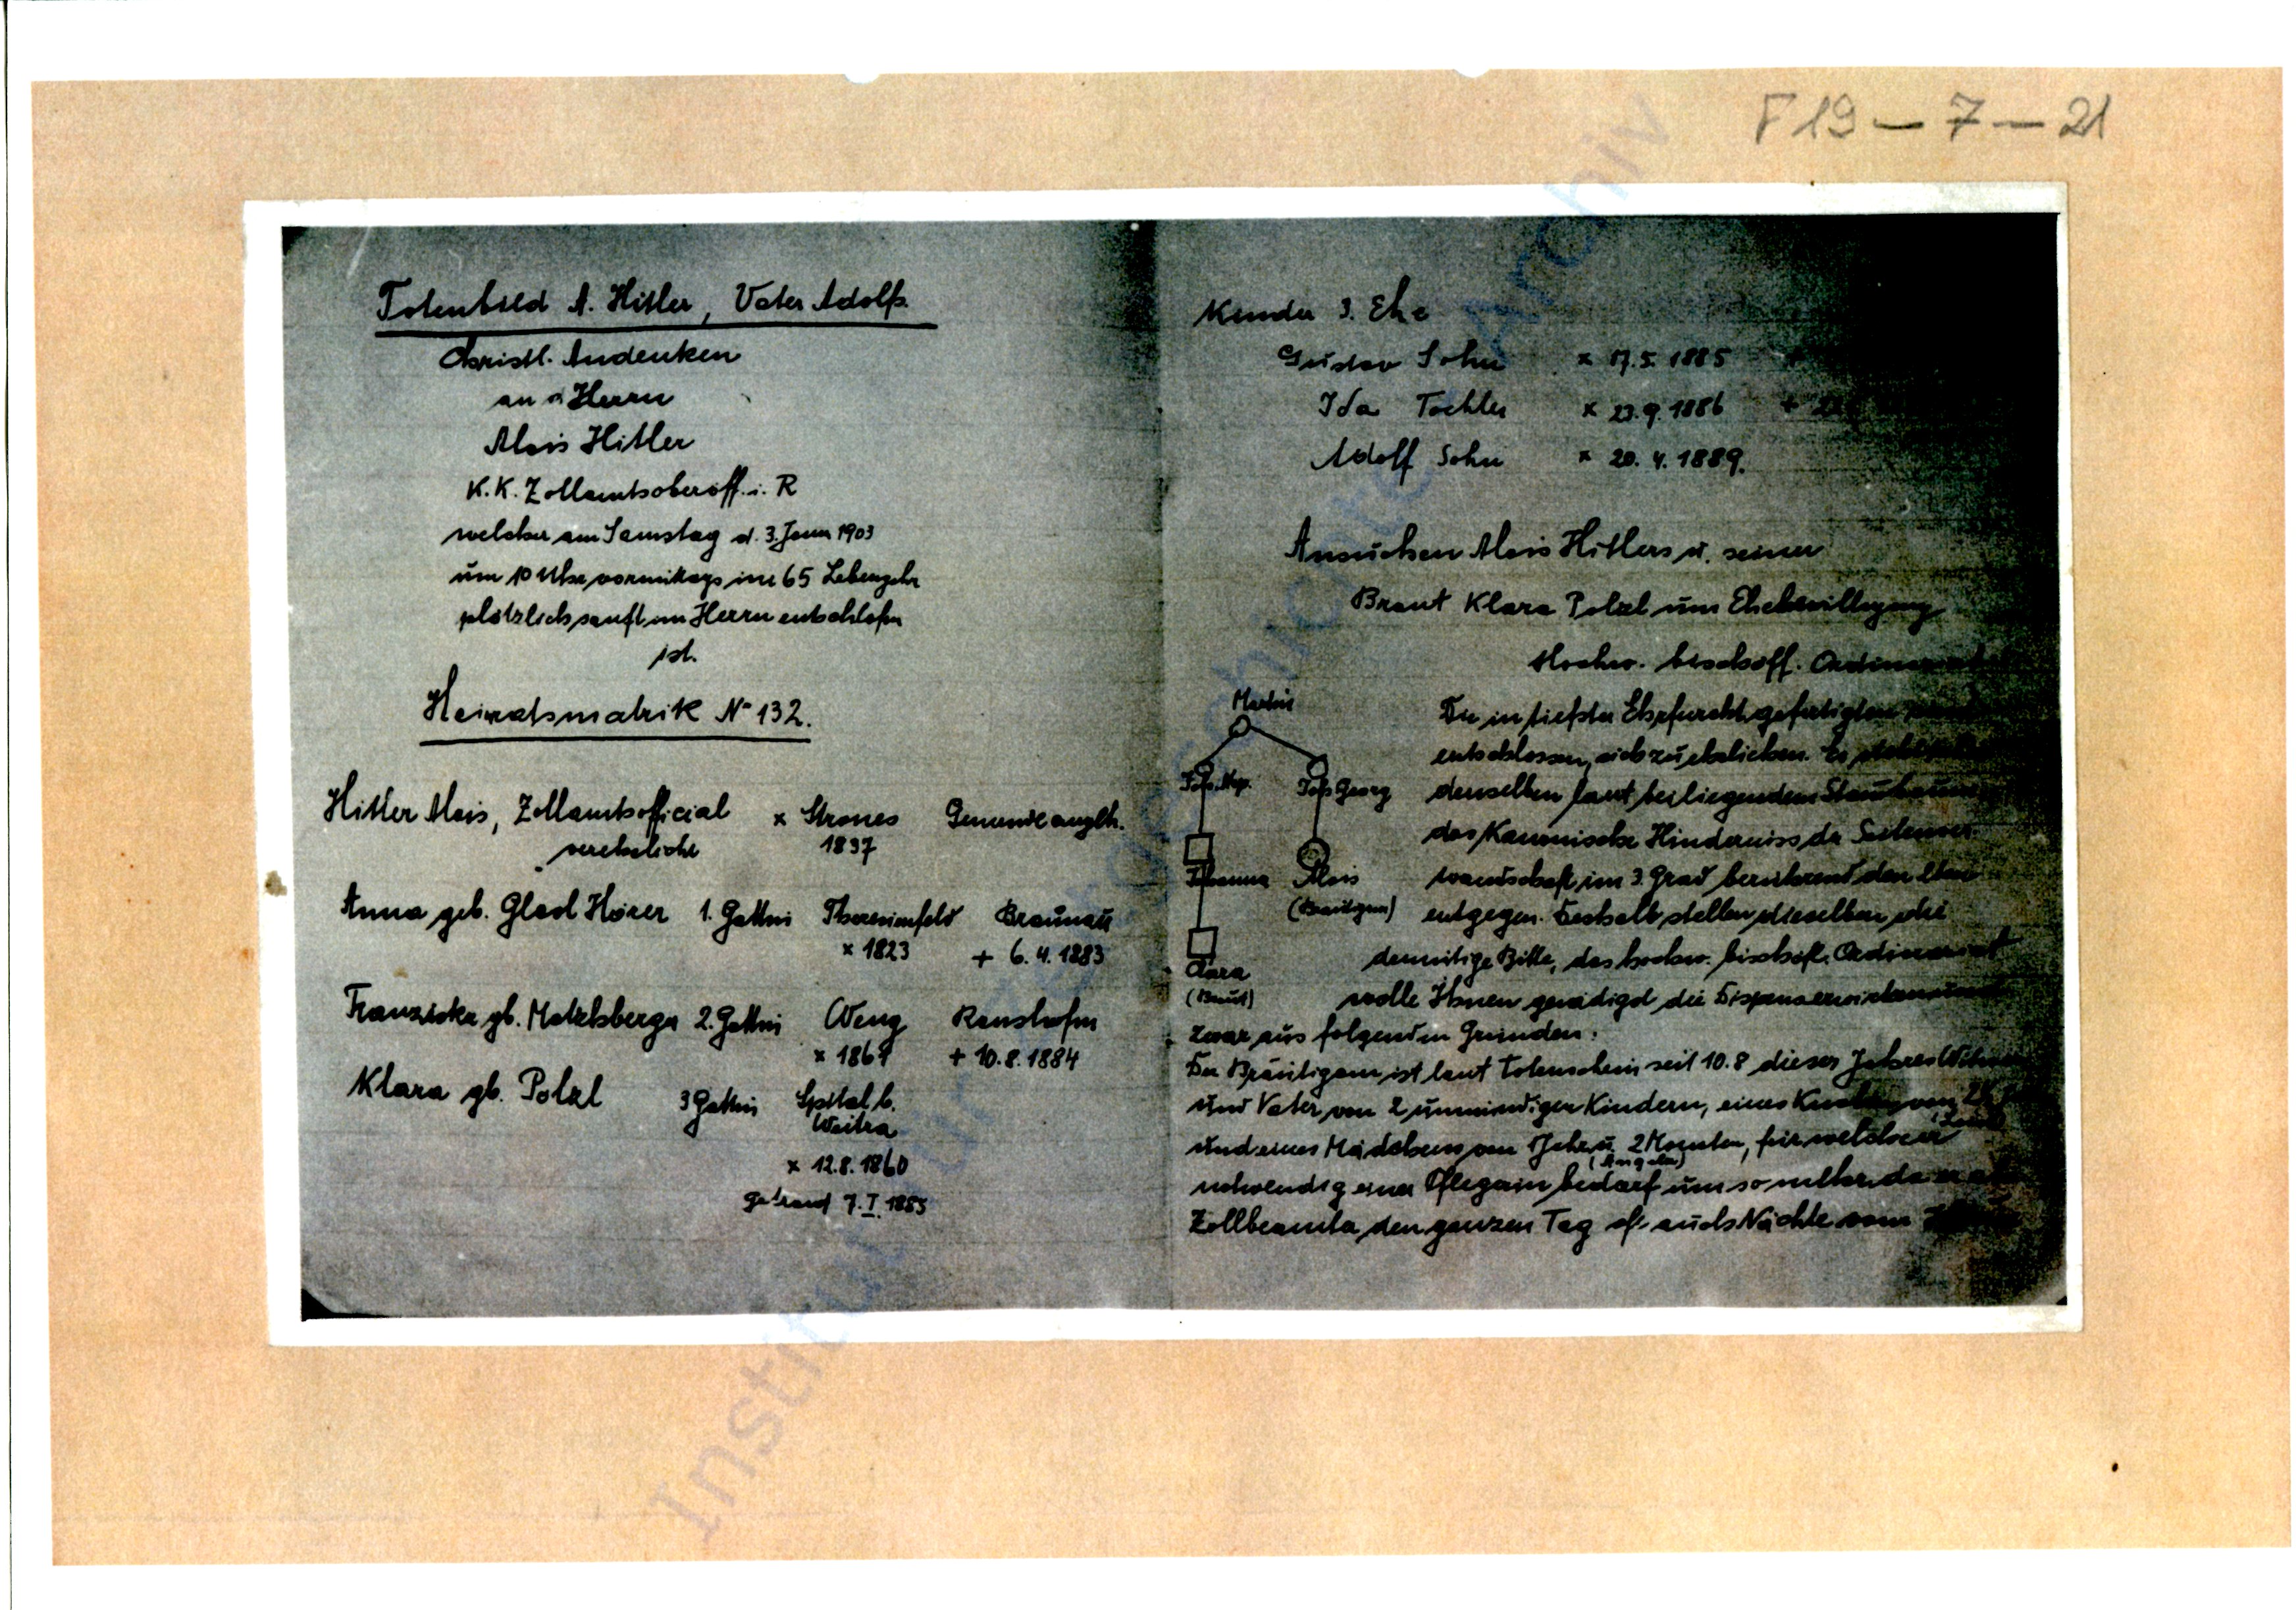 F 19 — 7 — 21
Totenbild A. Hitler, Vater Adolfs.
Christl. Andenken
an d Herrn
Alois Hitler
K.K. Zollamtsoberoff. i. R
welcher am Samstag d. 3. Jänn 1903
um 10 Uhr vormittags im 65 Lebensjahr
plötzlich sanft im Herrn entschlafen
ist.
Heiratsmatrik Nº 132.
Hitler Alois, Zollamtsofficial x Strones
verehelicht 1837
Anna geb. Glasl Hörer 1. Gattin Theresienfeld Braunau
x 1823 + 6. 4. 1883
Franziska gb. Matzlsberger 2. Gattin Weng Ranshofen
x 1861 + 10. 8. 1884
Klara gb. Pölzl 3 Gattin Spital b.
Weitra
x 12. 8. 1860
getraut 7. I. 1885
Kinder 3. Ehe
Gustav Sohn x 17. 5. 1885
Ida Tochter x 23. 9. 1886 +
Adolf Sohn x 20. 4. 1889.
Ansuchen Alois Hitlers u. seiner
Braut Klara Pölzl um Ehebewilligung
Hochw. bischöff. Ordinariat
Martin
Joh. Nep. Joh Georg
Johanna Alois
(Bräutigam)
Clara
(Braut)
Die in tiefster Ehrfurcht gefertigten
entschlossen, sich zu ehelichen. Es steht
denselben laut beiliegendem Stammbaum
das Kanonische Hinderniss der Seitenver
wandschaft im 3. Grad berührend den 2ten
entgegen. Deshalb stellen dieselben die
demütige Bitte, das hochw. bischöfl. Ordinariat
wolle Ihnen gnädigst die Dispens erwirken
zwar aus folgenden Gründen:
Der Bräutigam ist laut Totenschein seit 10. 8 dieses Jahres Witwer
und Vater von 2 unmündigen Kindern, eines Knaben von 2½
und eines Mädchens von 1 Jahr u. 2 Monaten, für welche er
(Angela)
notwendig einer Pflegerin bedarf um so mehr, da er
Zollbeamter den ganzen Tag oft auch Nächte vom